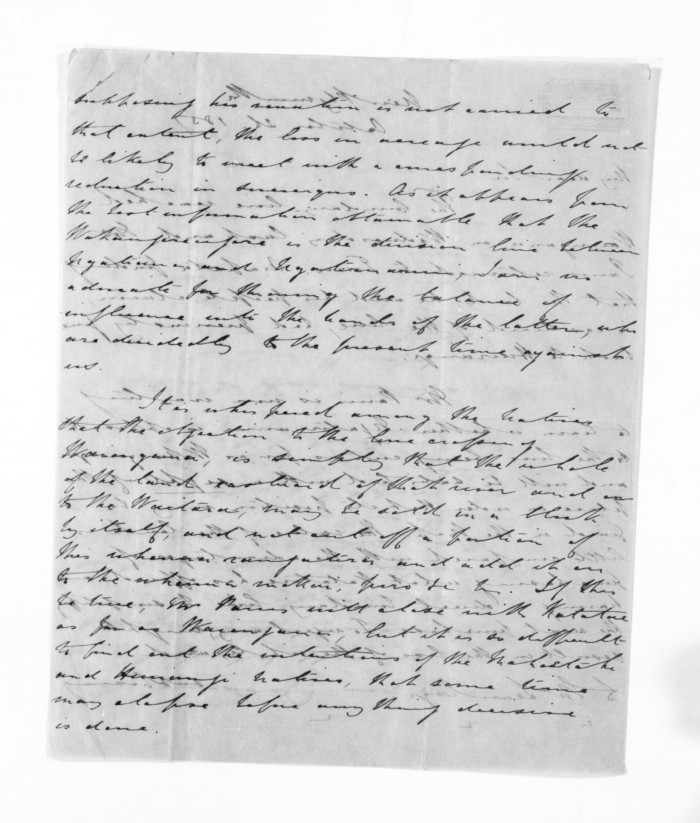 supposing his election is not carried to
that extent, the loss in acreage would not
be likely to meet with a corresponding
reduction in sovereigns. As it appears from
the best information obtainable that the
is the division line between
and I am no
advocate for throwing the balance of
influence into the hands of the latter, who
are decidedly to the present time against
us.
It is whispered among the natives
that the objection to the line crossing
is simply that the whole
of the land eastward of that river and on
to the Waitara, may be sold in a block
by itself, and not cut off a portion of
this whenua and add it on
to the whenua If this
be true, Mr Parris will close with Katatore
as far as but it is so difficult
to find out the intentions of the
and natives, that some time
may elapse before any thing decisive
is done.